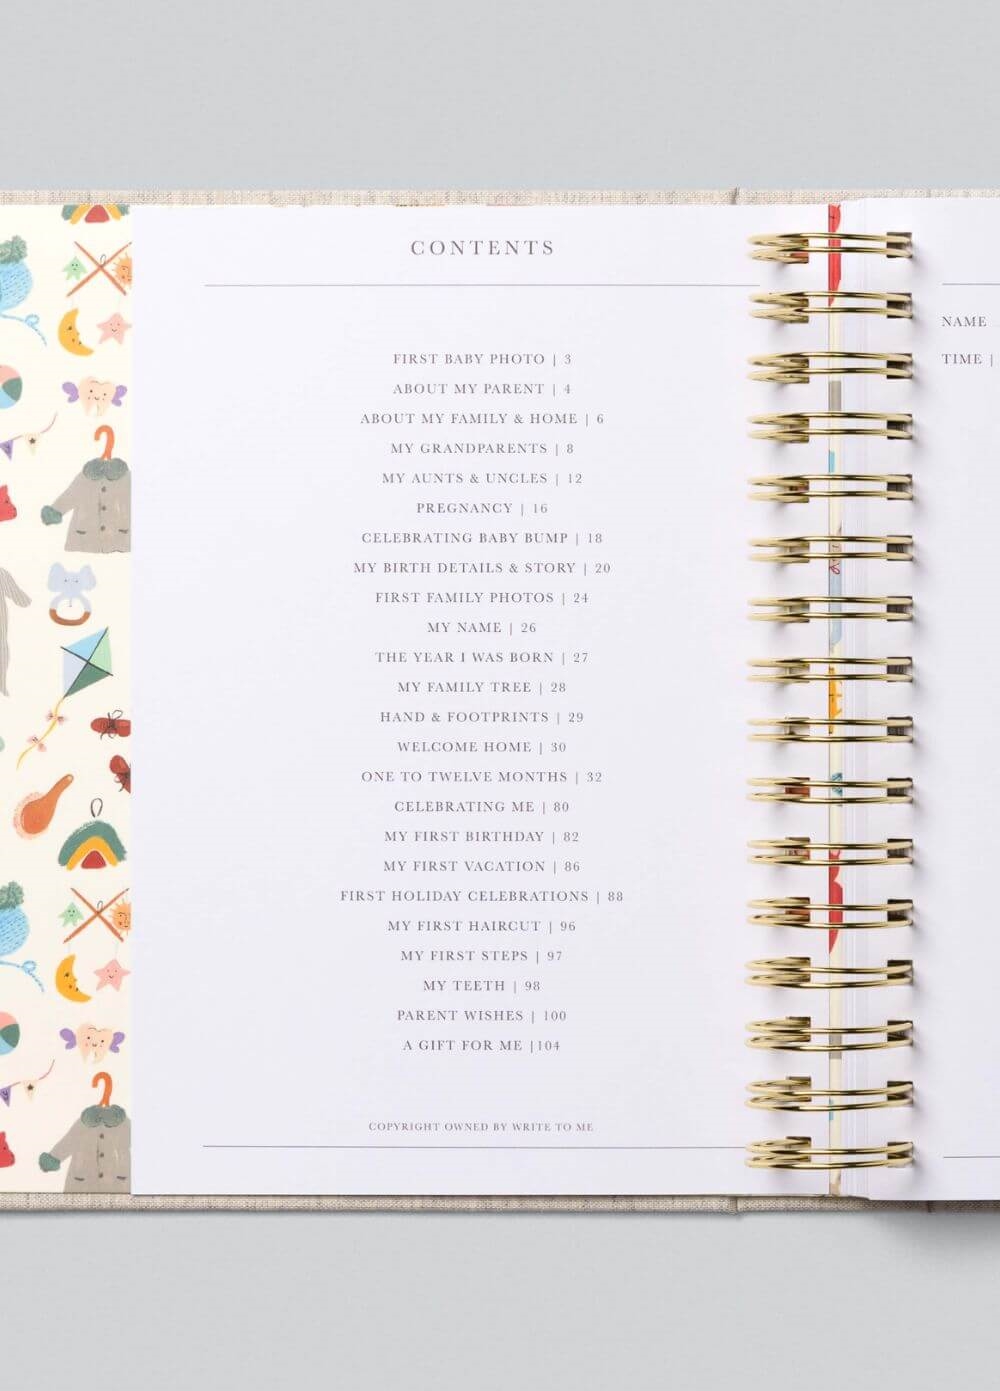 CONTENTS
FIRST BABY PHOTO | 3
ABOUT MY PARENT | 4
ABOUT MY FAMILY & HOME | 6
MY GRANDPARENTS | 8
MY AUNTS & UNCLES | 12
PREGNANCY | 16
CELEBRATING BABY BUMP | 18
MY BIRTH DETAILS & STORY | 20
FIRST FAMILY PHOTOS | 24
MY NAME | 26
THE YEAR I WAS BORN | 27
MY FAMILY TREE | 28
HAND & FOOTPRINTS | 29
WELCOME HOME | 30
ONE TO TWELVE MONTHS | 32
CELEBRATING ME | 80
MY FIRST BIRTHDAY | 82
MY FIRST VACATION | 86
FIRST HOLIDAY CELEBRATIONS | 88
MY FIRST HAIRCUT | 96
MY FIRST STEPS | 97
MY TEETH | 98
PARENT WISHES | 100
A GIFT FOR ME |104
COPYRIGHT OWNED BY WRITE TO ME
NAME
TIME |